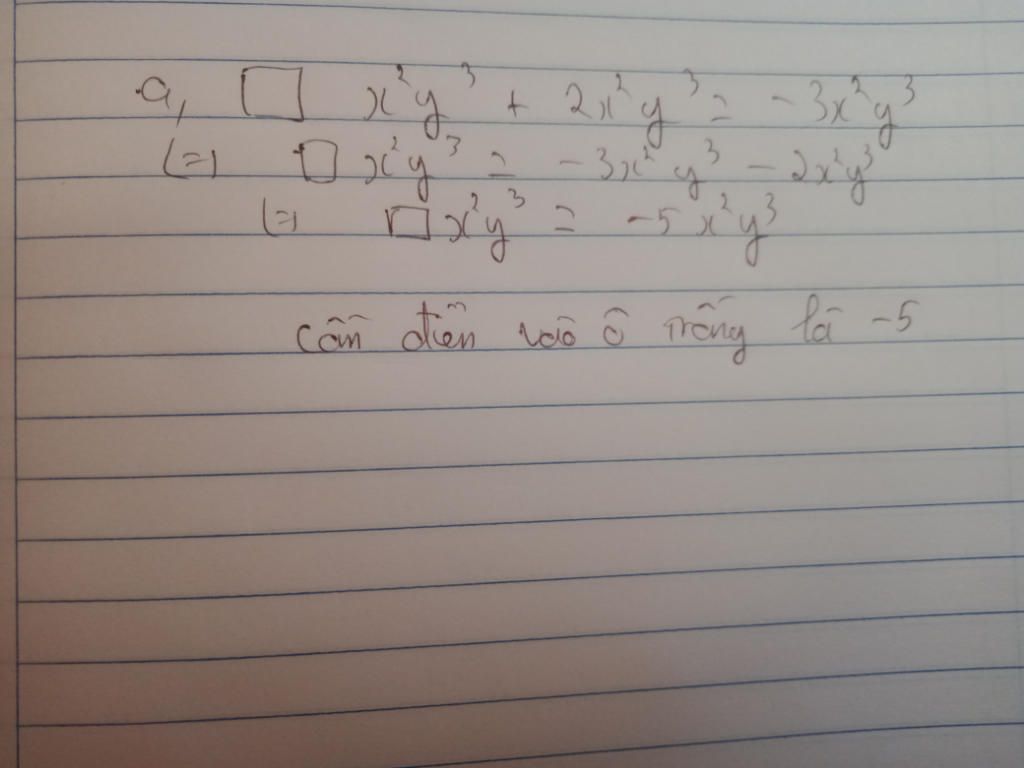 a, □ x²y³ + 2x²y³ = -3x²y³
(=) □ x²y³ = -3x²y³ - 2x²y³
(=) □ x²y³ = -5x²y³
Cần điền vào ô trống là -5